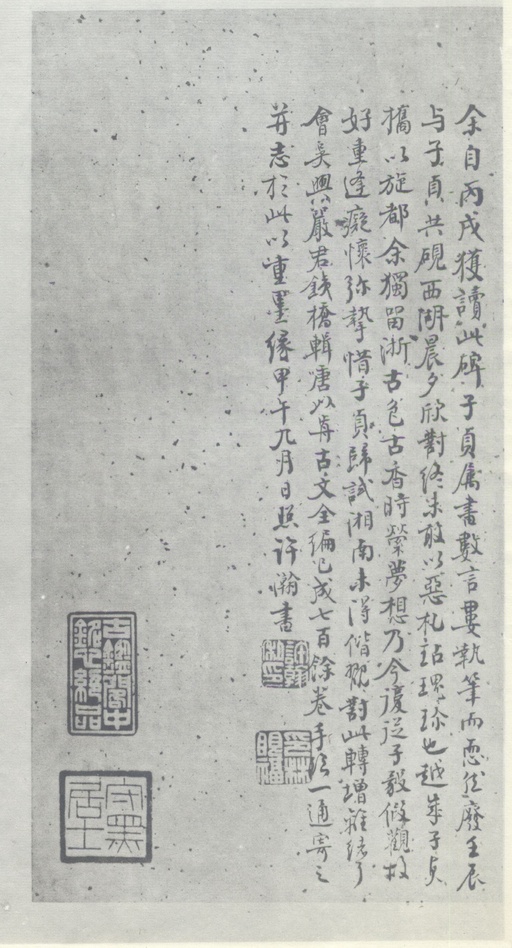 余自丙戌獲讀此碑子貞屬書數言屢執筆而恧然廢壬辰
与子貞共硯西湖晨夕欣對終未敢以惡札玷瓌珍也越歲子貞
攜以旋都余獨留浙古色古香時縈夢想乃今復從子毅假觀故
好重逢癡懷弥摯惜子貞歸試湘南未得偕觀對此轉增離緒了
會吳興嚴君鐵橋輯唐以前古文全編已成七百餘卷手語一通寄之
并志於此以重墨緣甲午九月日照許瀚書
許瀚私印
印林眼福
古鑑閣中銘心絕品
守黑居士